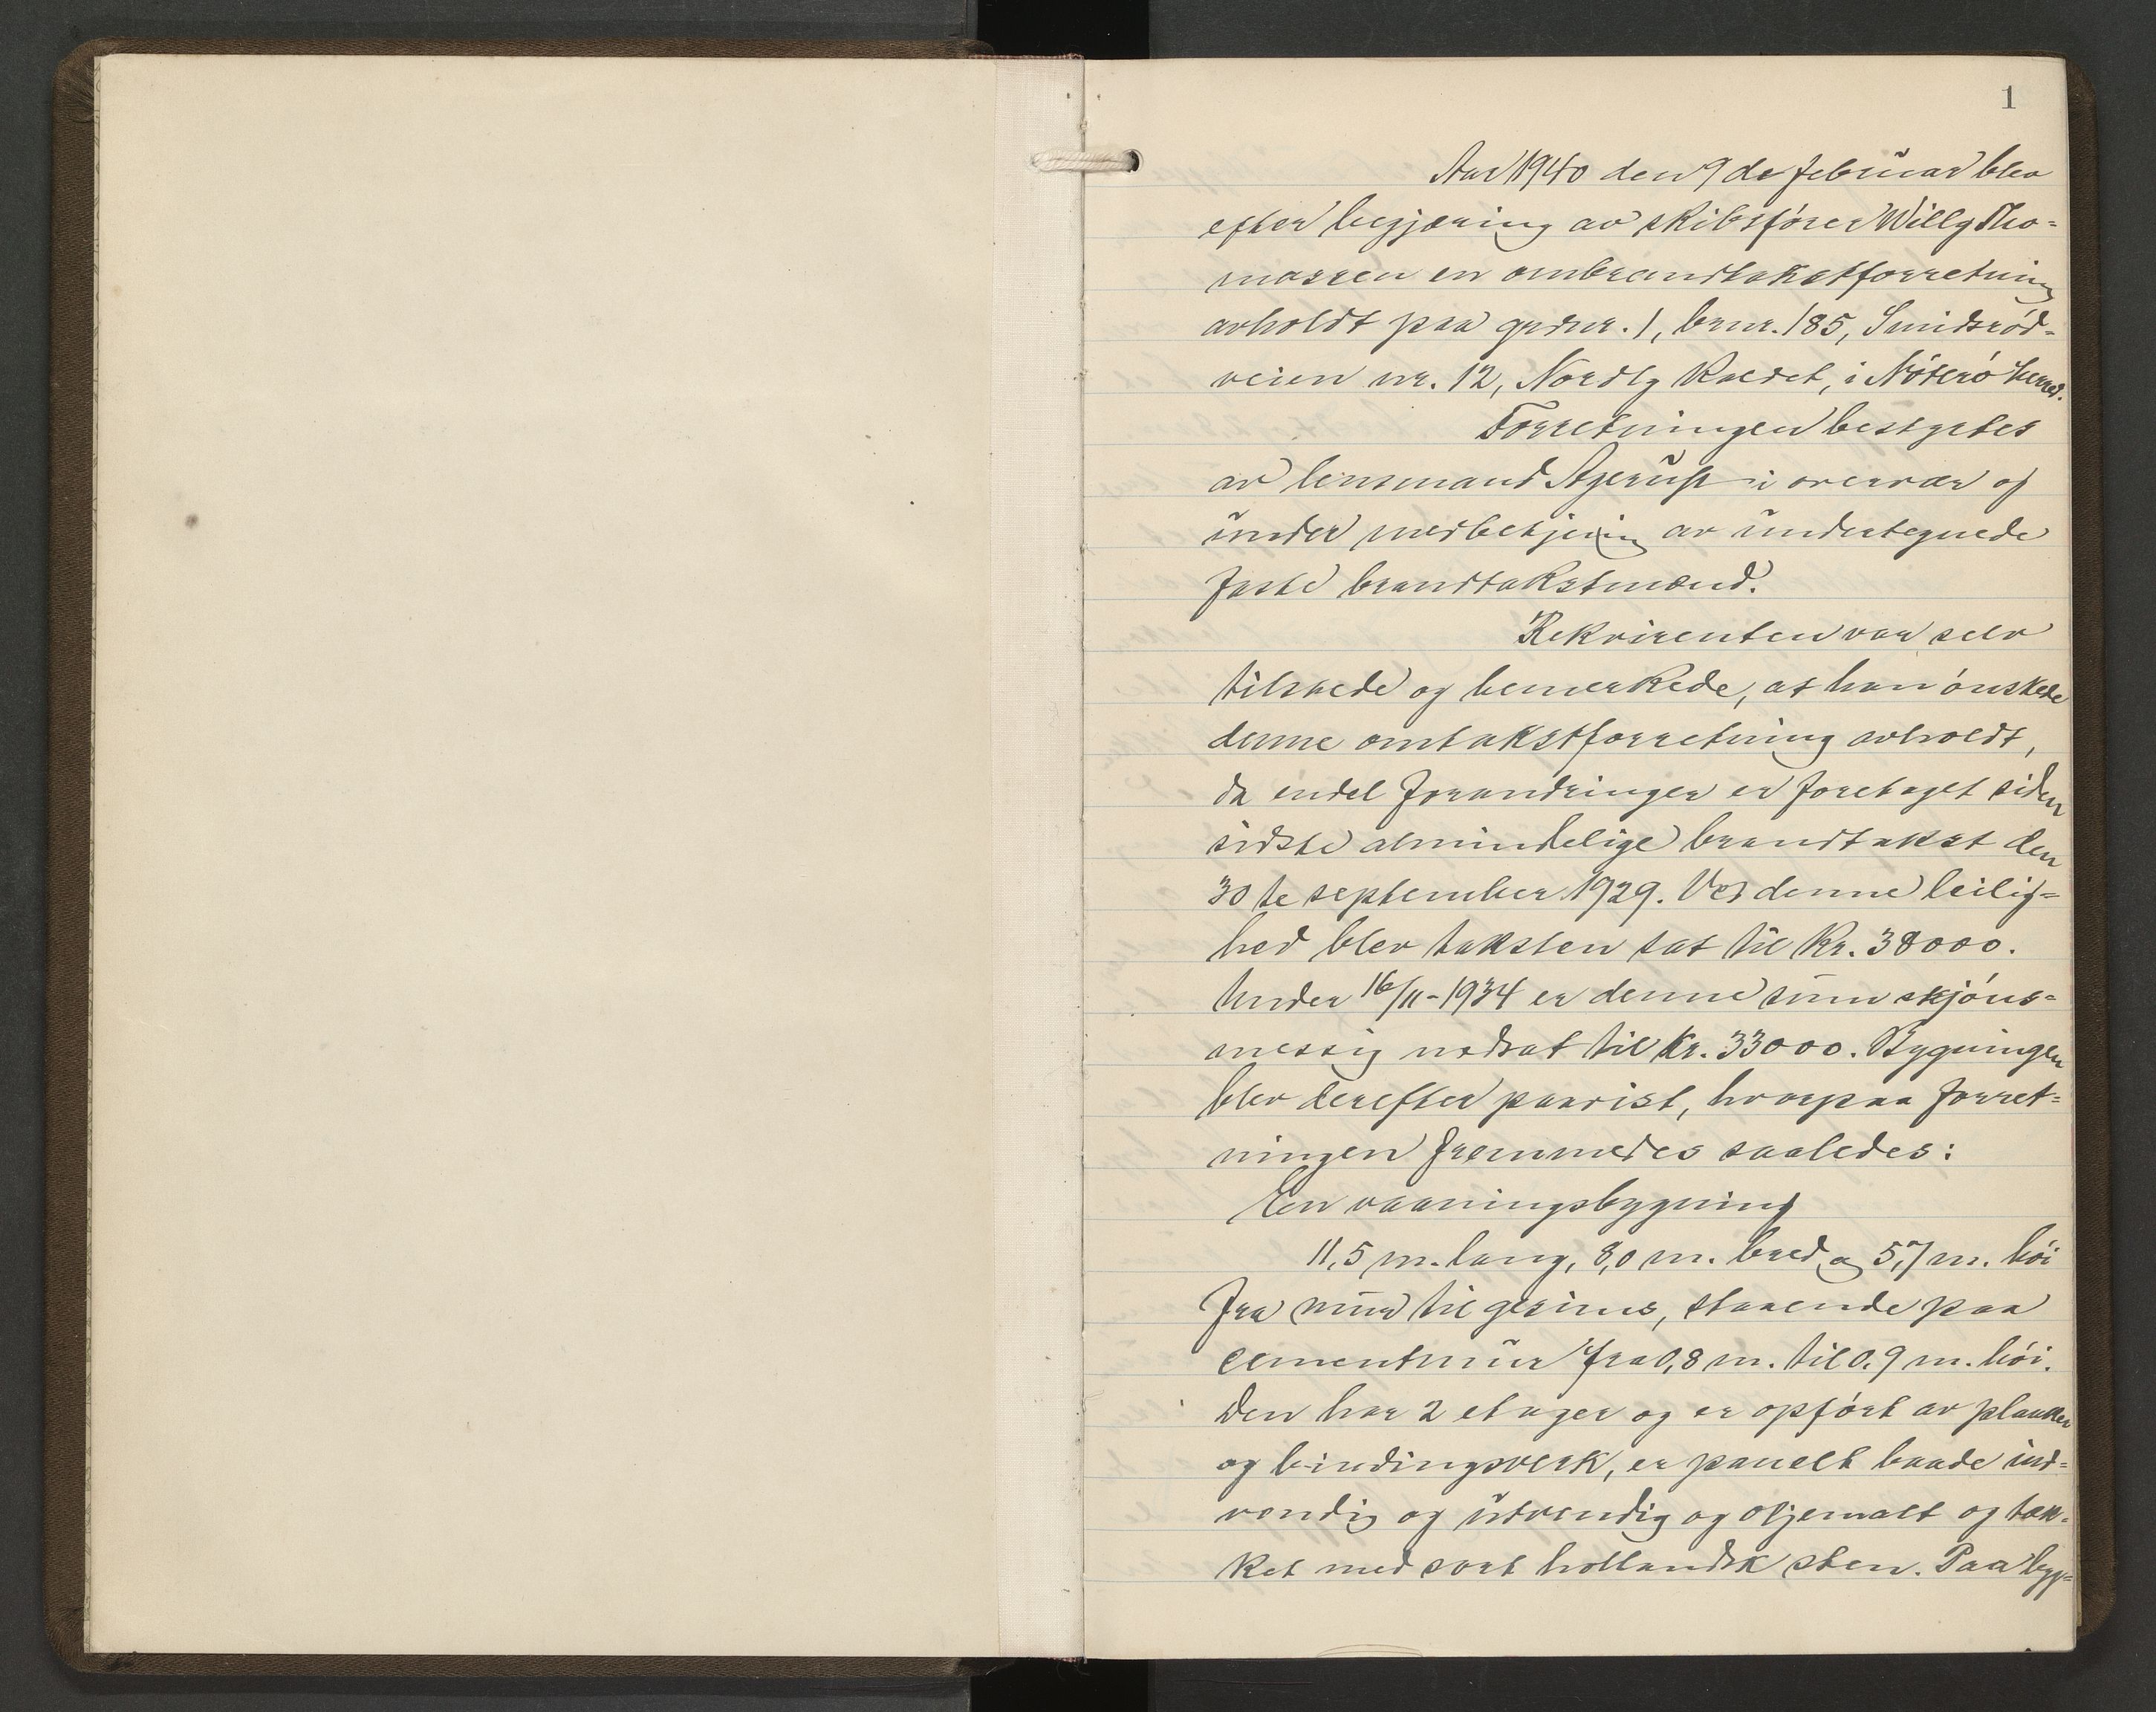 1
Aar 1940 den 9de februar blev
efter begjæring av skibsfører Willy Tho=
massen en ombrandtakstforretning
avholdt paa grdnr. 1, brnr. 185, Smidsrød=
veien nr. 12, Nordly kaldet, i Nøterø herred.
Forretningen bestyrtes
av lensmand Agerup i overvær og
under medbetjening av undertegnede
faste brandtakstmænd.
Rekvirenten var selv
tilstede og bemerkede, at han ønskede
denne omtakstforretning avholdt,
da endel forandringer er foretaget siden
sidste almindelige brandtakst den
30te september 1929. Ved denne leilig=
hed blev taksten sat til kr. 38000.
Under 16/11-1934 er denne sum skjøns=
messig nedsat til kr. 33000. Bygningen
blev derefter paavist, hvorpaa forret=
ningen fremmedes saaledes:
En vaaningsbygning
11,5 m. lang, 8,0 m. bred og 5,7 m. høi
fra mur til gesims, staaende paa
cementmur fra 0,8 m. til 0,9 m. høi.
Den har 2 etager og er opført av planker
og bindingsverk, er panelt baade ind=
vendig og utvendig og oljemalt og tæk=
ket med sort hollandsk sten. Paa byg=